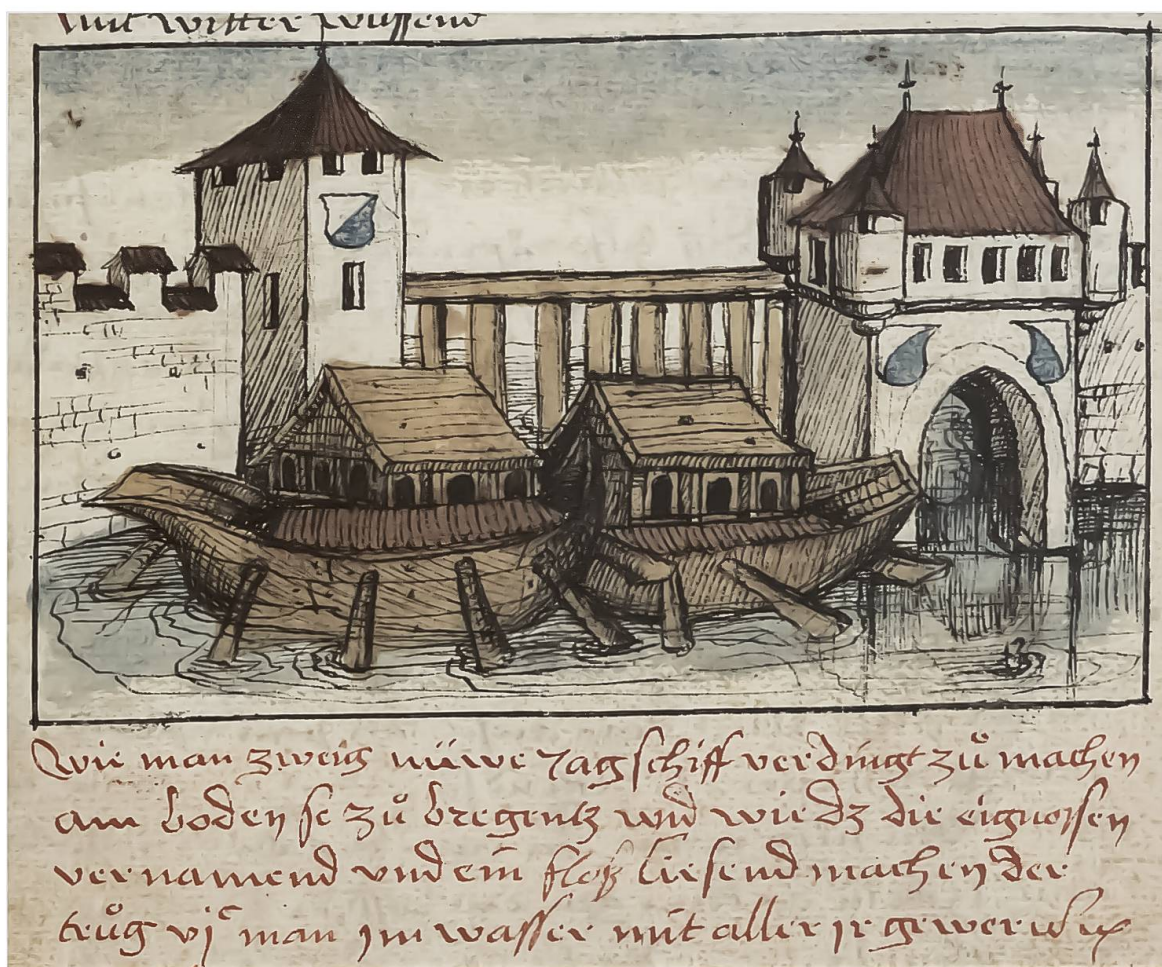 mit witter wüssend
Wie man zweig nüwe Jagschiff verdingt zů machen
am boden se zů bregentz und wie dz die eignossen
vernamend und ein floß liesend machen der
trůg vjͨ man jm wasser mit aller jr